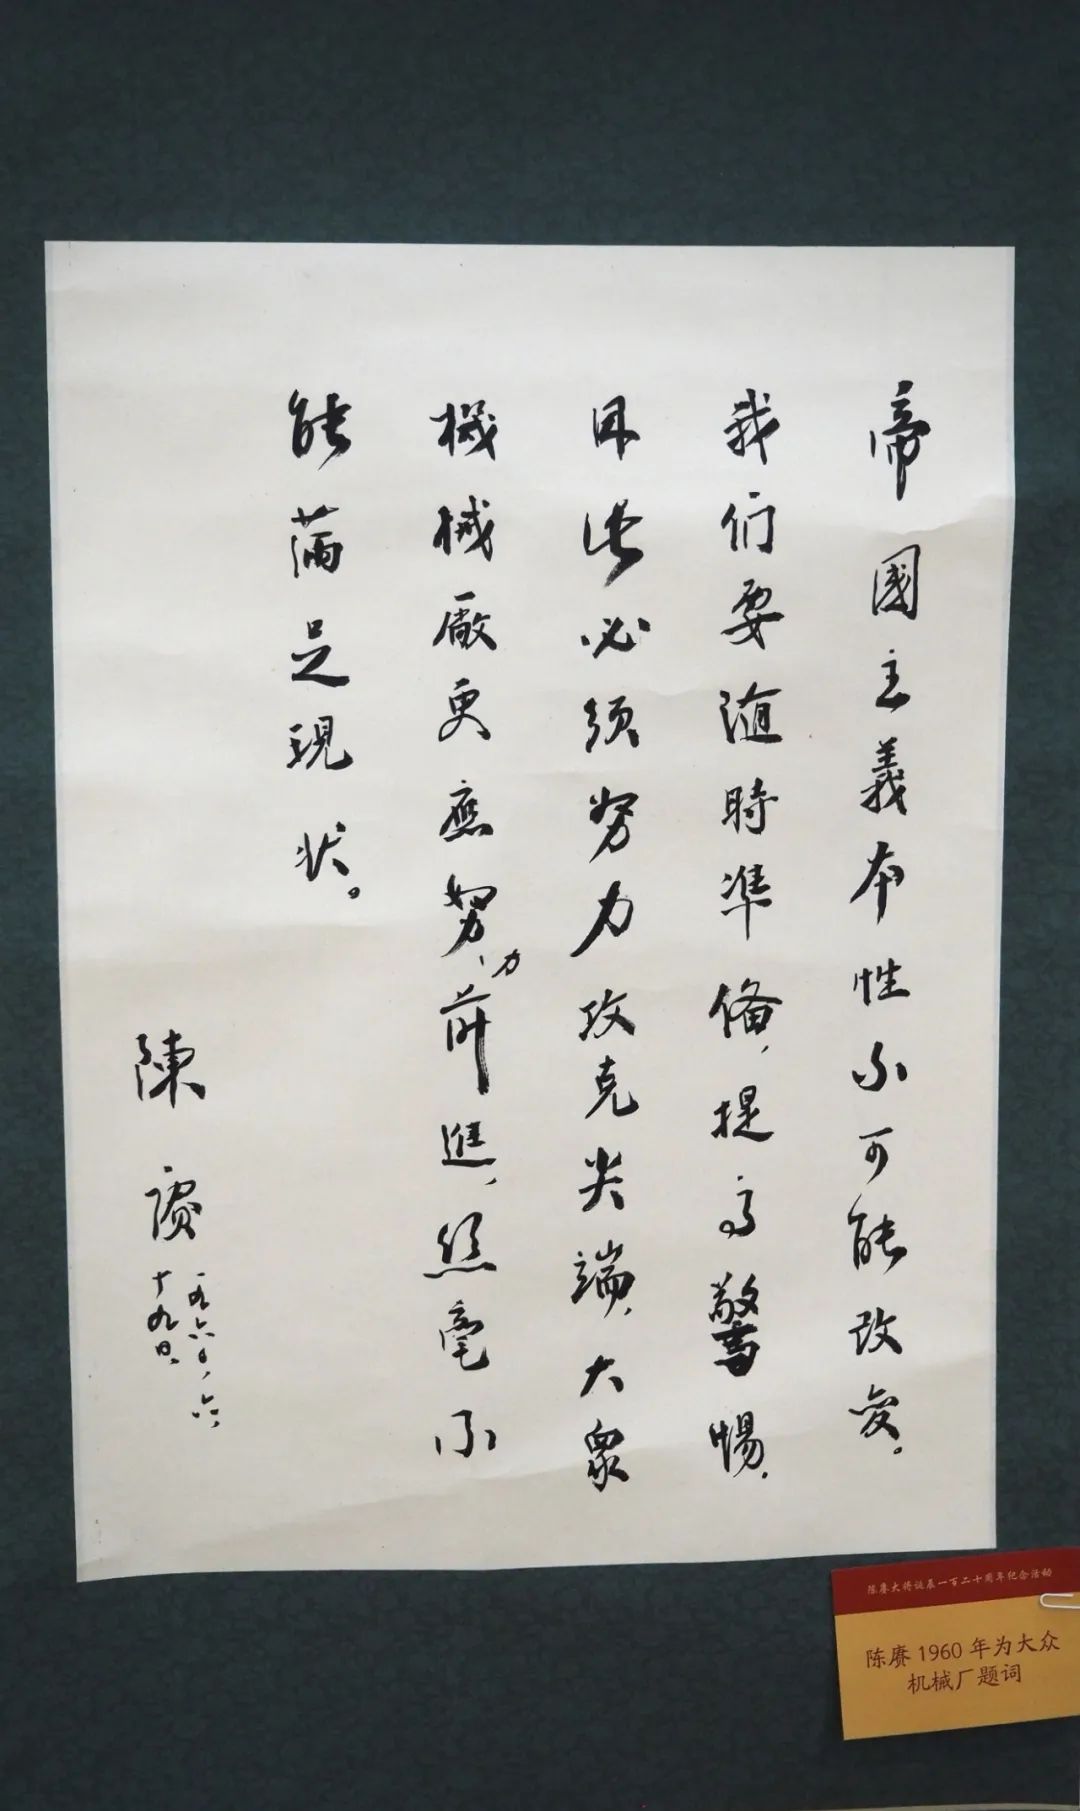 帝國主義本性不可能改變。
我们要随時準備，提高警惕，
因此必须努力攻克尖端，大眾
機械廠更應努力前進，絲毫不
能滿足現状。
陳賡
一九六〇、六、
十九日、
陈赓大将诞辰一百二十周年纪念活动
陈赓 1960 年为大众
机械厂题词